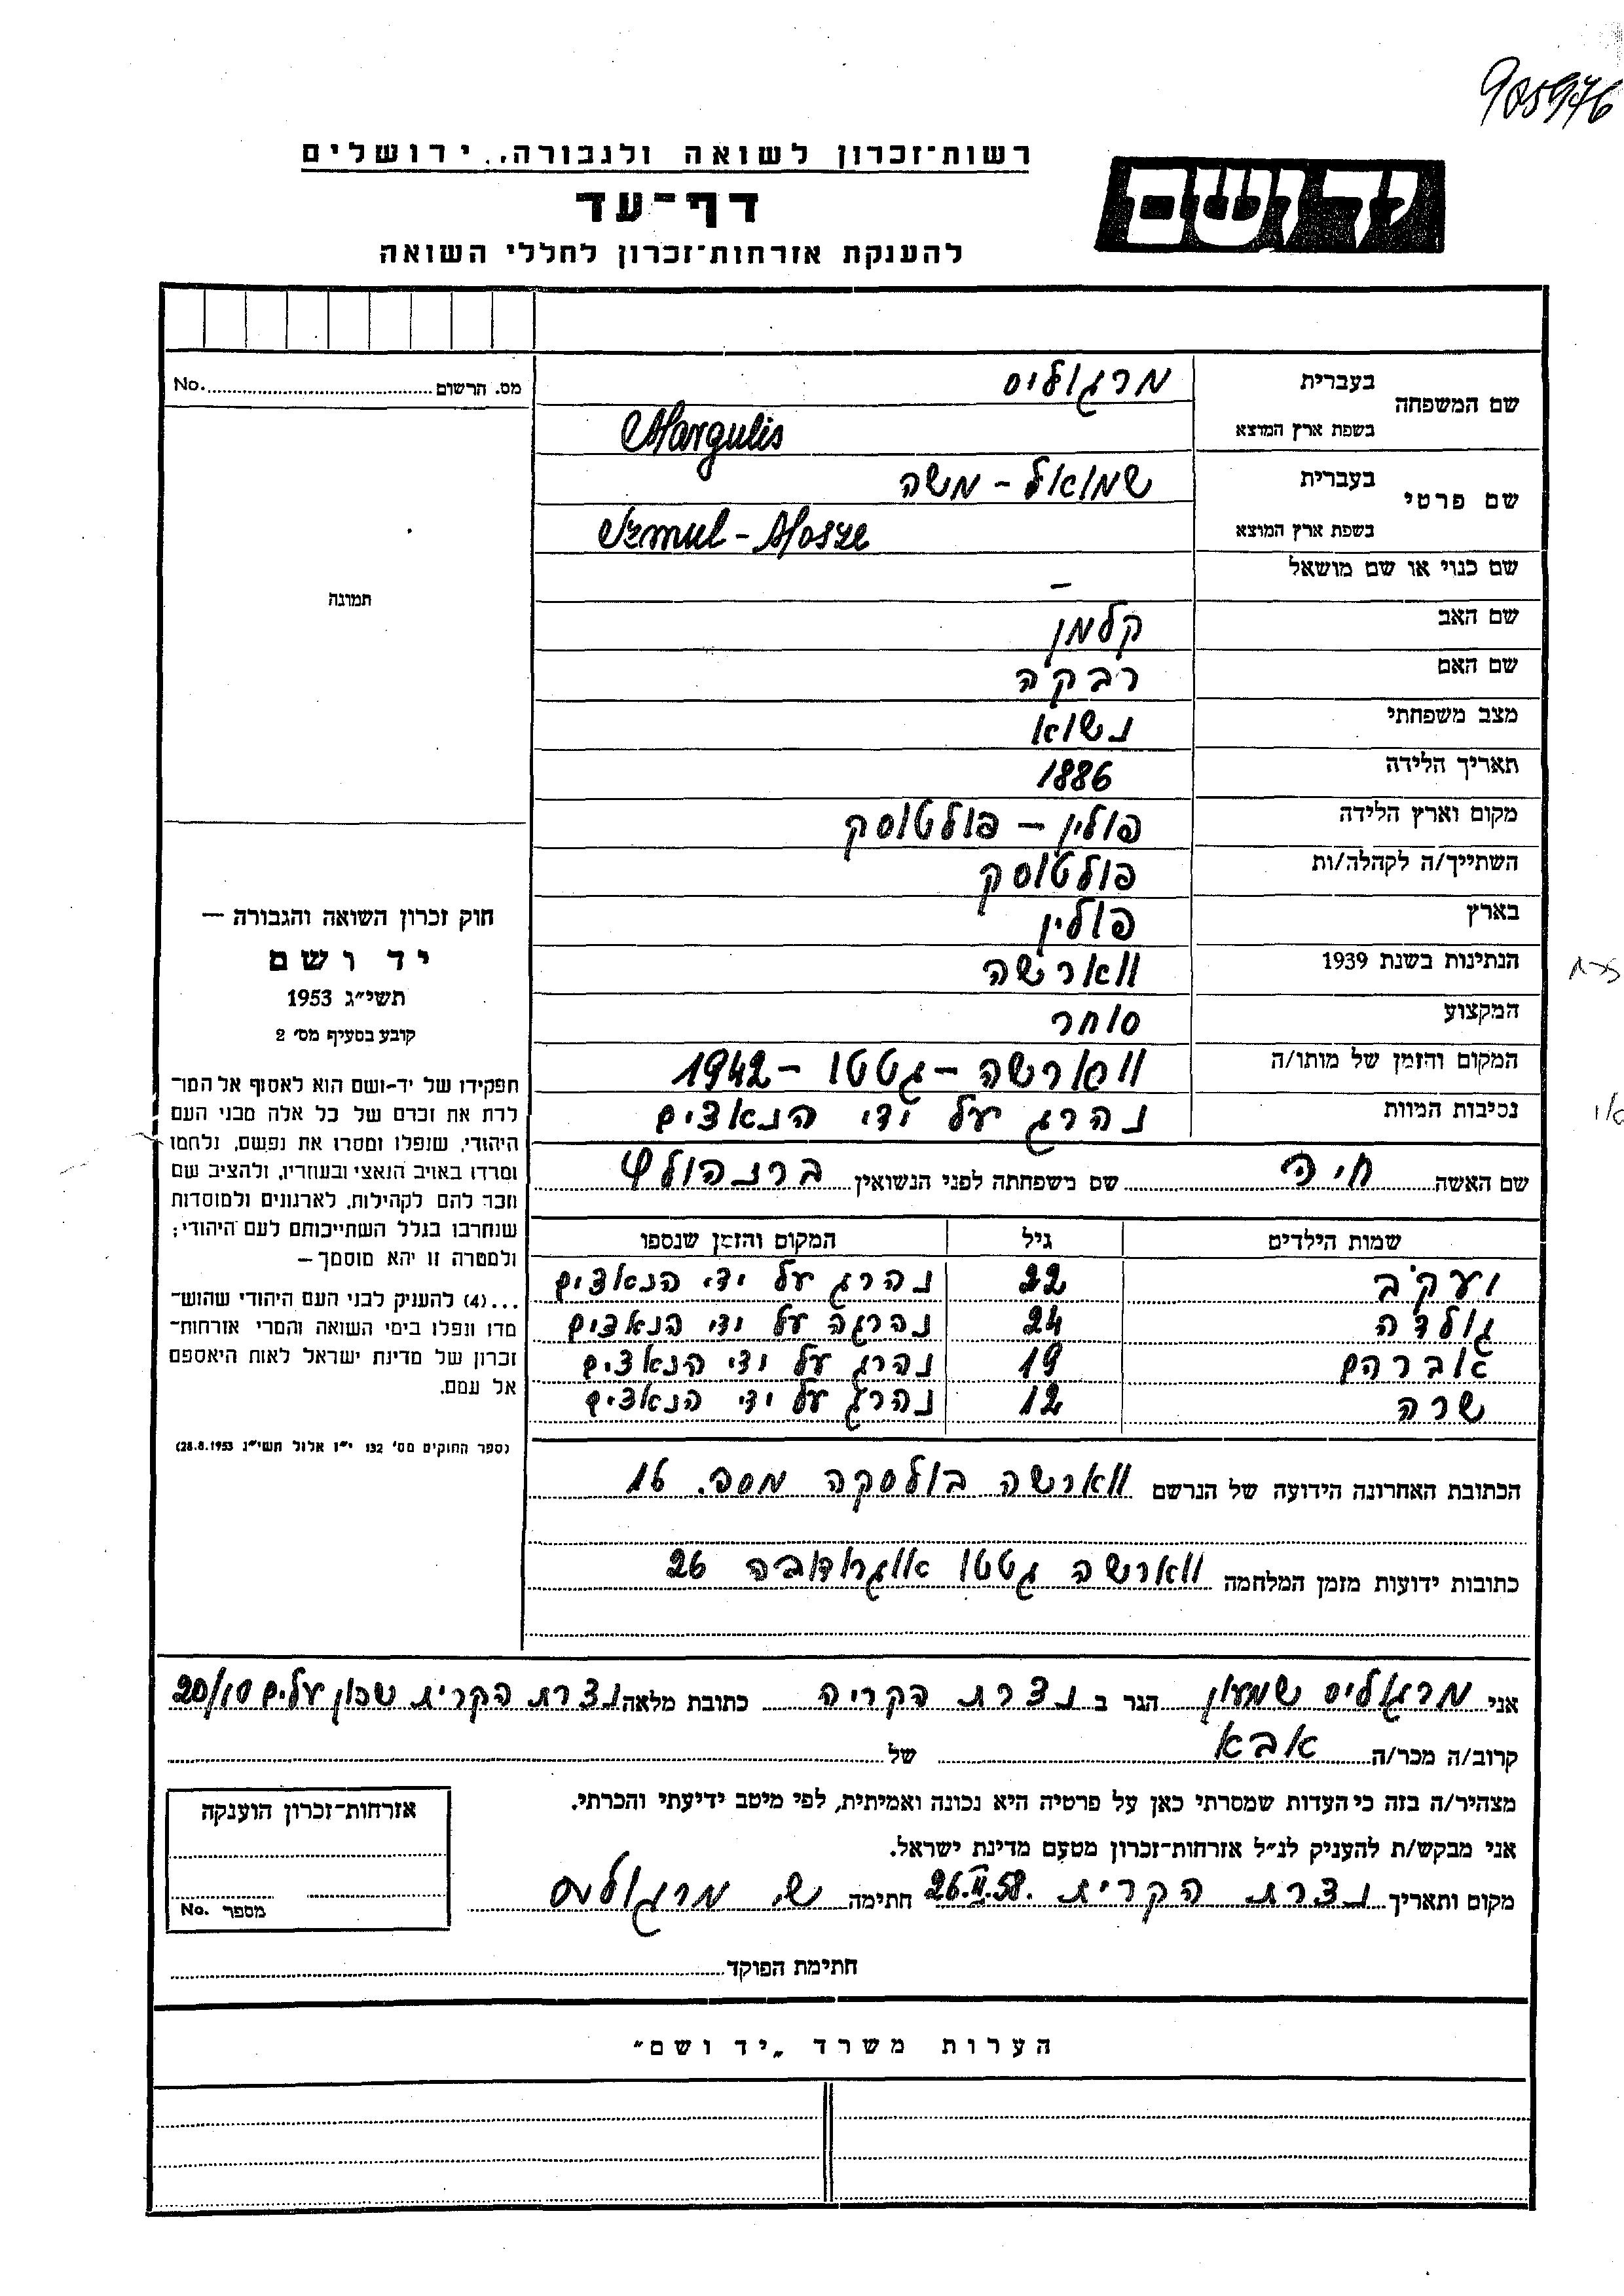 905976
רשות־זכרון לשואה ולגבורה, ירושלים
יד ושם
דף־עד
להענקת אזרחות־זכרון לחללי השואה
מס. הרשום No.
תמונה
חוק זכרון השואה והגבורה —
יד ושם
תשי״ג 1953
קובע בסעיף מס׳ 2
תפקידו של יד-ושם הוא לאסוף אל המו־
לדת את זכרם של כל אלה מבני העם
היהודי, שנפלו ומסרו את נפשם, נלחמו
ומרדו באויב הנאצי ובעוזריו, ולהציב שם
וזכר להם לקהילות, לארגונים ולמוסדות
שנחרבו בגלל השתייכותם לעם היהודי;
ולמטרה זו יהא מוסמך —
...(4) להעניק לבני העם היהודי שהוש־
מדו ונפלו בימי השואה והמרי אזרחות־
זכרון של מדינת ישראל לאות היאספם
אל עמם.
(ספר החוקים מס׳ 132 י״ז אלול תשי״ג 28.8.1953)
שם המשפחה בעברית מרגוליס
בשפת ארץ המוצא Margulis
שם פרטי בעברית שמואל - משה
בשפת ארץ המוצא Szmul - Mosze
שם כנוי או שם מושאל —
שם האב קלמן
שם האם רבקה
מצב משפחתי נשוא
תאריך הלידה 1886
מקום וארץ הלידה פולין — פולטוסק
השתייך/ה לקהלה/ות פולטוסק
בארץ פולין
הנתינות בשנת 1939 ווארשה
המקצוע סוחר
המקום והזמן של מותו/ה ווארשה - גטטו - 1942
נסיבות המוות נהרג על ידי הנאצים
שם האשה חיה שם משפחתה לפני הנשואין ברנהולץ
שמות הילדים גיל המקום והזמן שנספו
יעקב 22 נהרג על ידי הנאצים
גולדה 24 נהרגה על ידי הנאצים
אברהם 19 נהרג על ידי הנאצים
שרה 12 נהרג על ידי הנאצים
הכתובת האחרונה הידועה של הנרשם ווארשה בולסקה מספ. 16
כתובות ידועות מזמן המלחמה ווארשה גטטו אוגרודובה 26
אני מרגוליס שמעון הגר ב נצרת הקריה כתובת מלאה נצרת הקרית שכון עלים 20/10
קרוב/ה מכר/ה אבא של
מצהיר/ה בזה כי העדות שמסרתי כאן על פרטיה היא נכונה ואמיתית, לפי מיטב ידיעתי והכרתי.
אני מבקש/ת להעניק לנ״ל אזרחות־זכרון מטעם מדינת ישראל.
מקום ותאריך נצרת הקרית 26.II.58. חתימה ש. מרגוליס
אזרחות־זכרון הוענקה
מספר No.
חתימת הפוקד
הערות משרד „יד ושם״